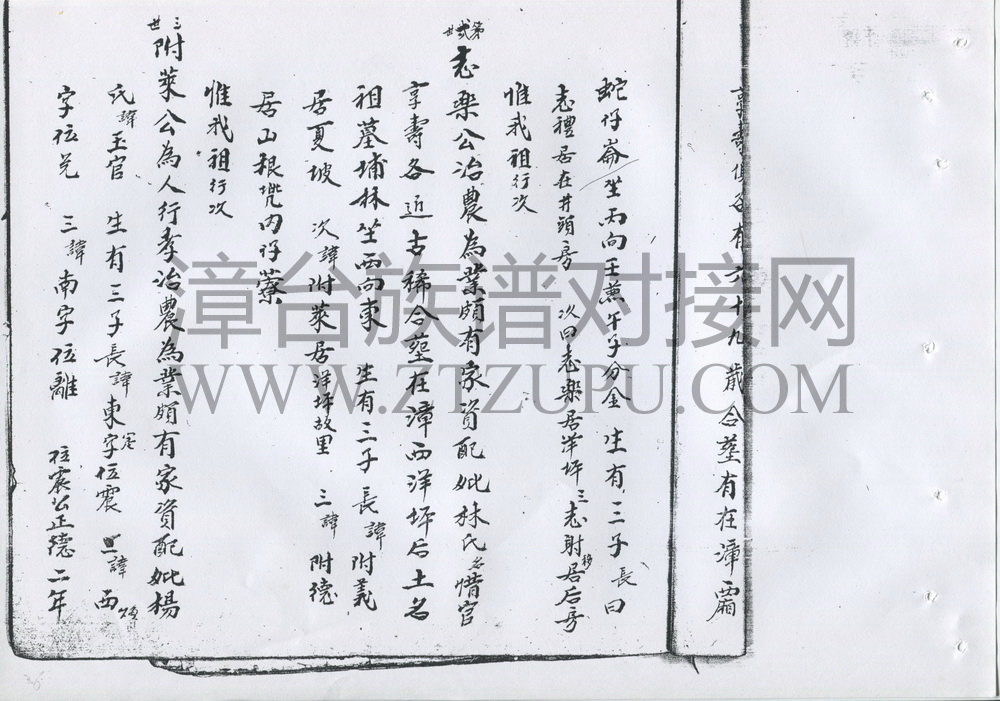 享壽俱各有六十九歲合塟有在漳霜
蛇仔崙坐丙向壬兼午子分金 生有三子 長曰
志禮居在井頭房 次曰志樂居洋坪 三志射移居后房
惟我祖行次
第貳世
志樂公冶農為業頗有家資配妣林氏名惜官
享壽各近古稀合塟在漳西洋坪后土名
祖墓埔林坐西向東 生有三子 長諱附義
居夏坡 次諱附萊居洋坪故里 三諱附德
居山根兜內仔藔
惟我祖行次
三世
附萊公為人行孝冶農為業頗有家資配妣楊
氏諱玉官 生有三子長諱東字位震 二諱西
字位兌 三諱南字位離 位震公正德二年
漳台族谱对接网
WWW.ZTZUPU.COM